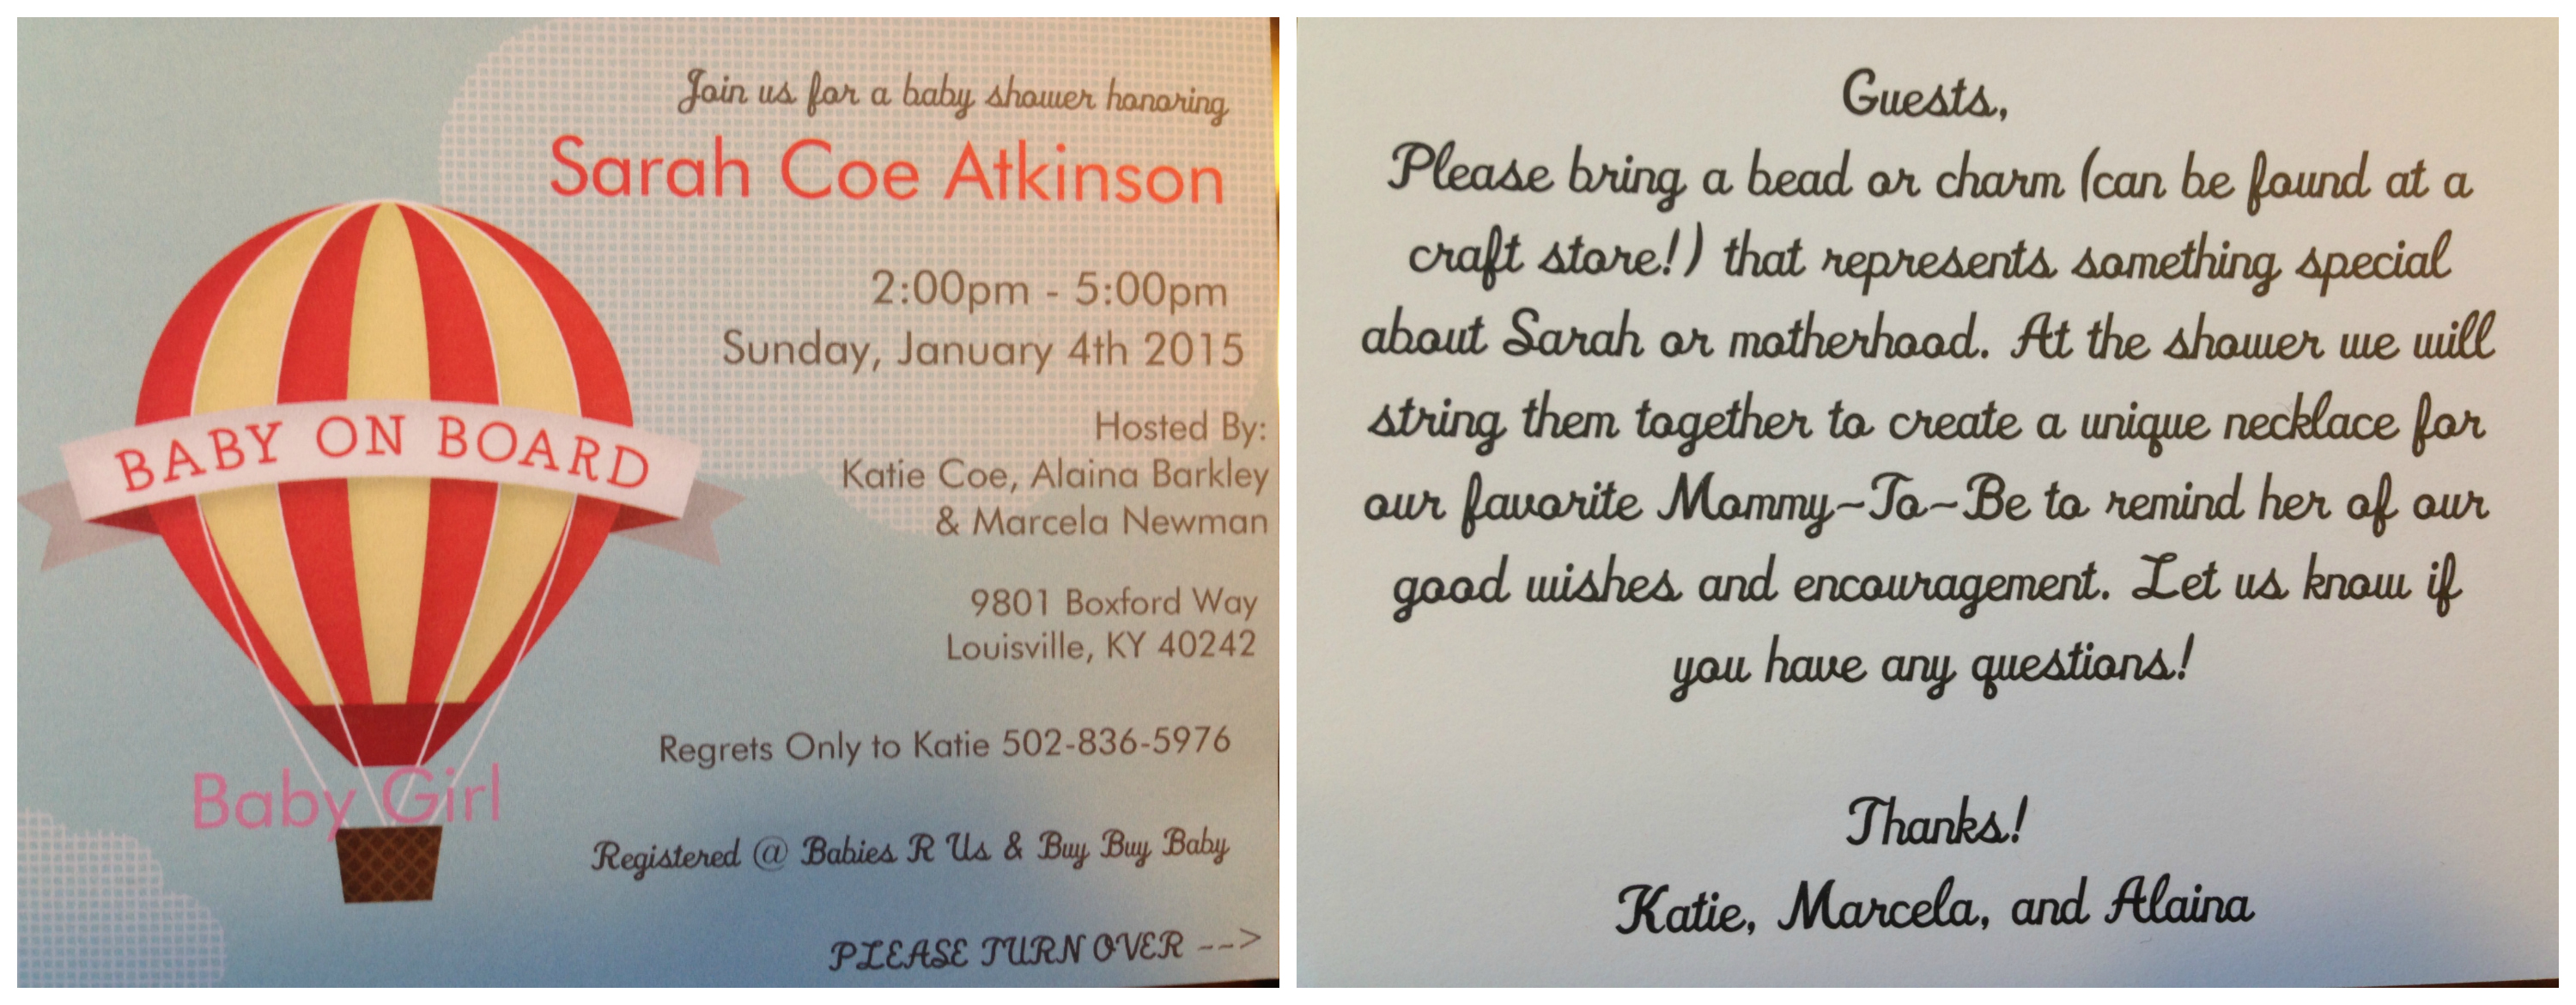 Join us for a baby shower honoring
Sarah Coe Atkinson
2:00pm - 5:00pm
Sunday, January 4th 2015
Hosted By:
Katie Coe, Alaina Barkley
& Marcela Newman
9801 Boxford Way
Louisville, KY 40242
Regrets Only to Katie 502-836-5976
Registered @ Babies R Us & Buy Buy Baby
PLEASE TURN OVER -->
BABY ON BOARD
Baby Girl
Guests,
Please bring a bead or charm (can be found at a
craft store!) that represents something special
about Sarah or motherhood. At the shower we will
string them together to create a unique necklace for
our favorite Mommy~To~Be to remind her of our
good wishes and encouragement. Let us know if
you have any questions!
Thanks!
Katie, Marcela, and Alaina